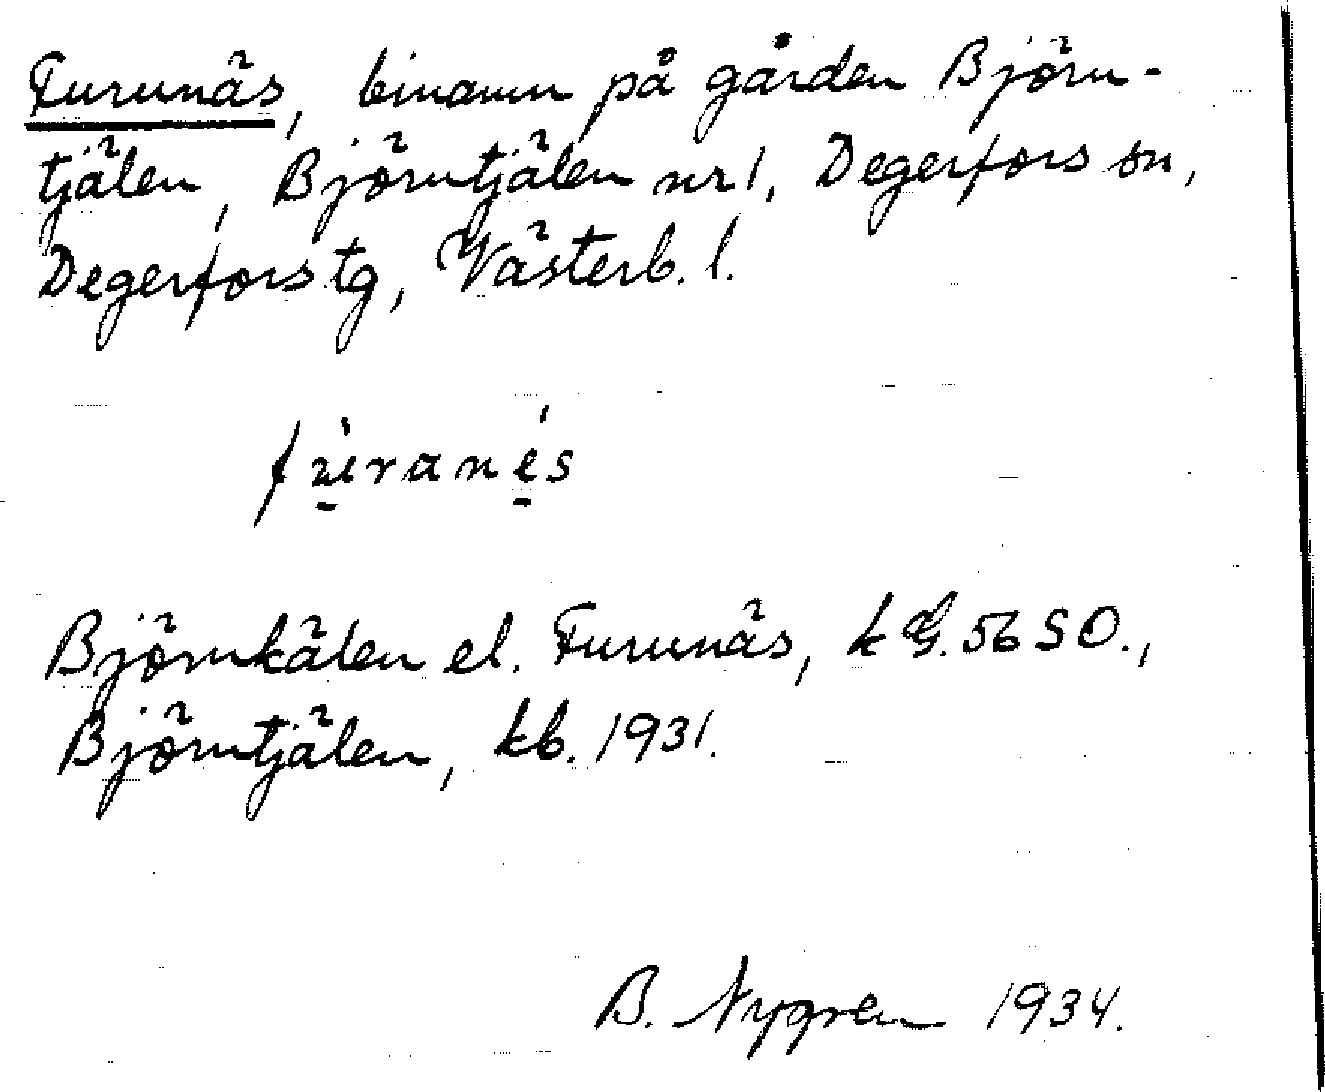 Furunäs, binamn på gården Björn-
tjälen, Björntjälen nr 1, Degerfors sn,
Degerfors tg, Västerb. l.
fu̱rane̱s
Björnkälen el. Furunäs, k G. 56 SO.,
Björntjälen, kb. 1931.
B. Nygren 1934.